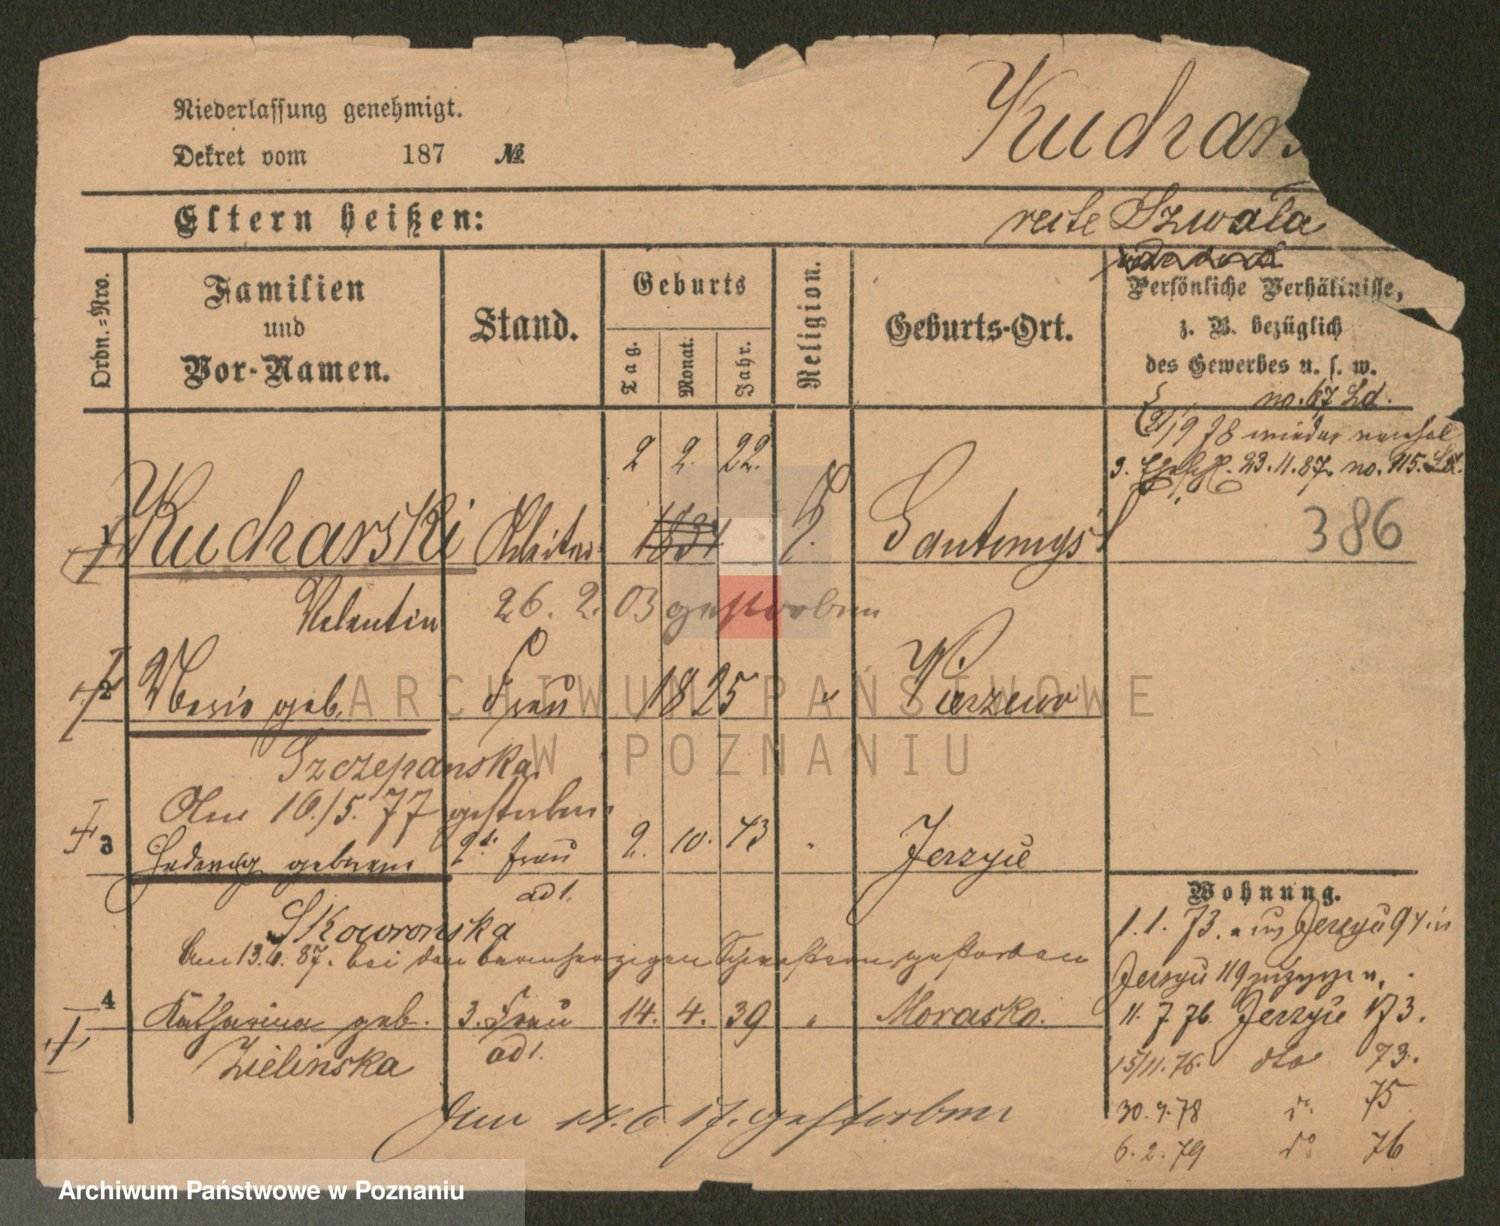 Niederlassung genehmigt.
Dekret vom 187 №
Kuchars
Eltern heißen:
recte Szwala
Ordn.-Nro.
Familien
und
Vor-Namen.
Stand.
Geburts
Tag.
Monat.
Jahr.
Religion.
Geburts-Ort.
Persönliche Verhältnisse,
z. B. bezüglich
des Gewerbes u. s. w.
no. 67 Ld.
9 78 wieder
3. 23.11.87. no. 915. Ld.
2 2. 22.
1 Kucharski 1831
386
Valentin 26. 2. 03 gestorben
2 Maria geb. Frau 1825 " Wierzewo
Szczepanska
Am 16./5. 77 gestorben
3 Hedwig geborene 2te Frau 2. 10. 43 " Jerzyce
ad 1.
Skowronska
Am 13.6. 87. bei den barmherzigen Schwestern gestorben
4 Katharina geb. 3. Frau 14. 4. 39 " Morasko.
Zielinska ad 1.
gestorben
Wohnung.
1. 1. 73. aus Jerzyce 94 in
Jerzyce 119 gezogen.
11. 7 76 Jerzyce 173.
15/11. 76. dto 73.
30. 9. 78 do. 75
6. 2. 79 do 76
ARCHIWUM PAŃSTWOWE
W POZNANIU
Archiwum Państwowe w Poznaniu